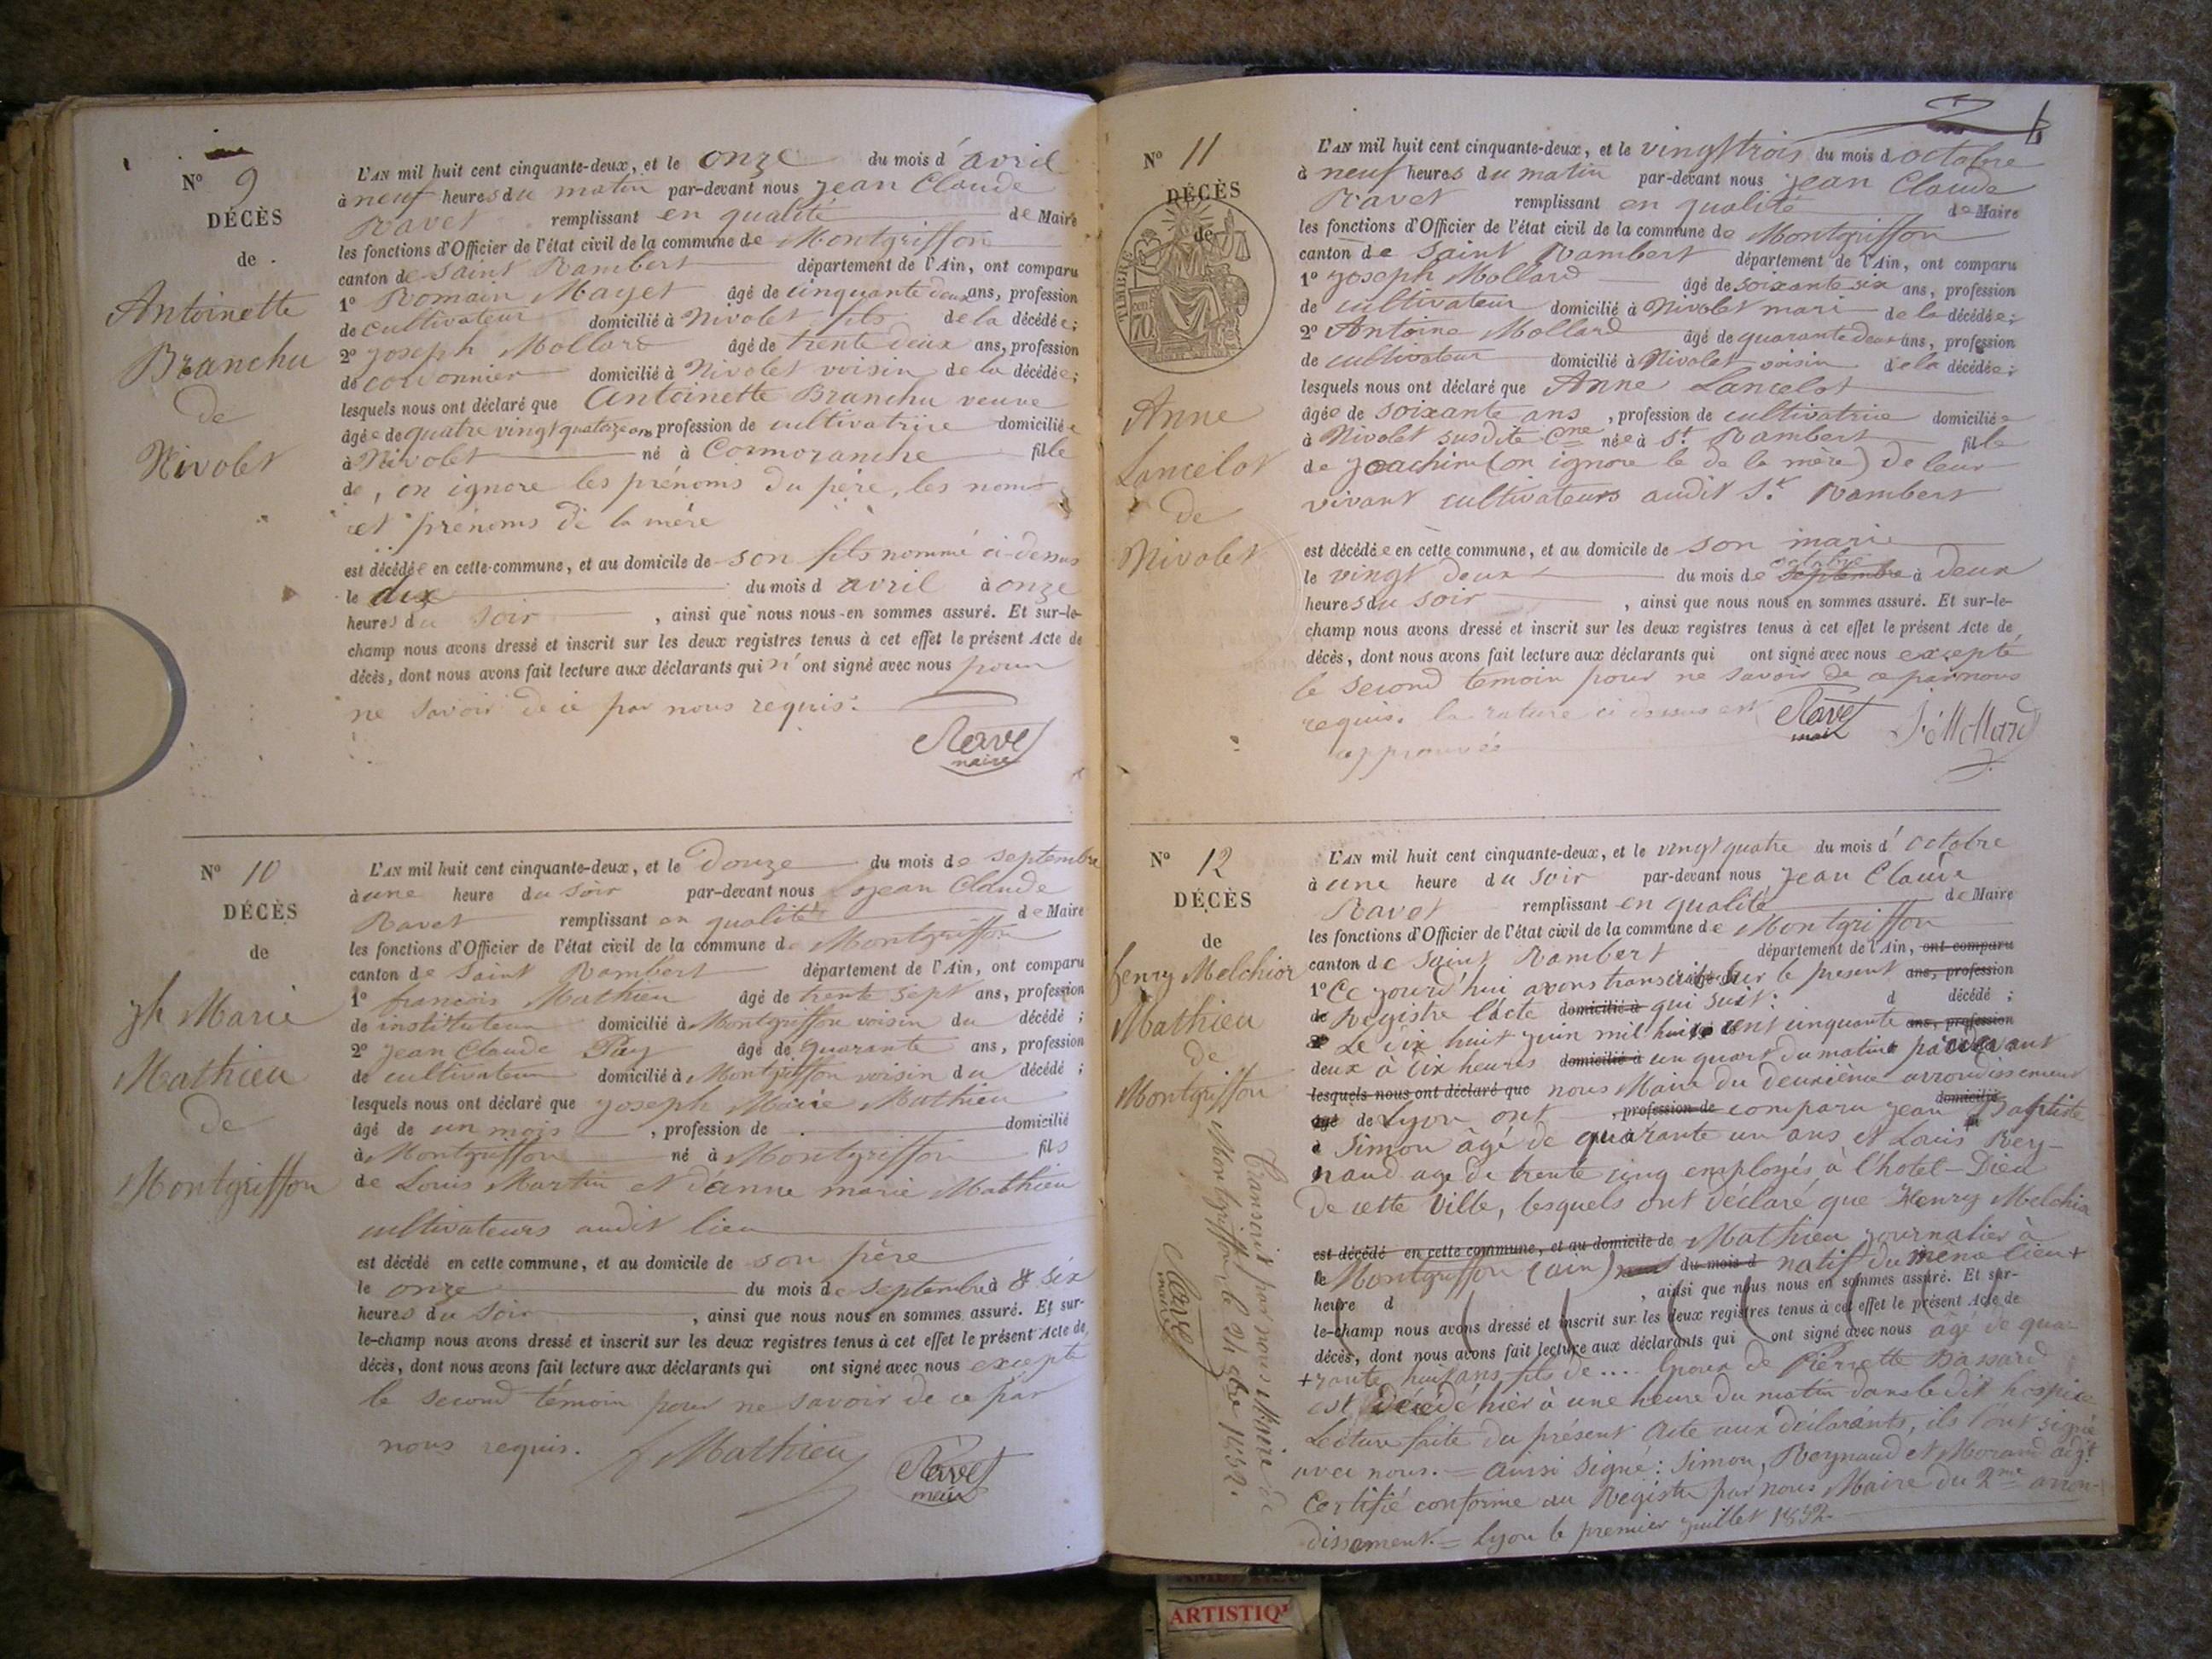 N° 9
DÉCÈS
de
Antoinette
Branchu
de
Nivolet
L'AN mil huit cent cinquante-deux, et le onze du mois d'avril
à neuf heures du matin par-devant nous Jean Claude
Ravet remplissant en qualité de Maire
les fonctions d'Officier de l'état civil de la commune de Montgriffon
canton de Saint Rambert département de l'Ain, ont comparu
1° Romain Mayet âgé de cinquante deux ans, profession
de cultivateur domicilié à Nivolet fils de la décédée;
2° Joseph Mollard âgé de trente deux ans, profession
de cordonnier domicilié à Nivolet voisin de la décédée;
lesquels nous ont déclaré que Antoinette Branchu veuve
âgée de quatre vingt quatorze ans profession de cultivatrice domiciliée
à Nivolet né à Cormoranche fille
de, on ignore les prénoms du père, les noms
et prénoms de la mère
est décédée en cette commune, et au domicile de son fils nommé ci-dessus
le dix du mois d avril à onze
heures du soir, ainsi que nous nous en sommes assuré. Et sur-le-
champ nous avons dressé et inscrit sur les deux registres tenus à cet effet le présent Acte de
décès, dont nous avons fait lecture aux déclarants qui n'ont signé avec nous pour
ne savoir de ce par nous requis.
Ravet
maire
N° 10
DÉCÈS
de
Jh Marie
Mathieu
de
Montgriffon
L'AN mil huit cent cinquante-deux, et le douze du mois de septembre
à une heure du soir par-devant nous Jean Claude
Ravet remplissant en qualité de Maire
les fonctions d'Officier de l'état civil de la commune de Montgriffon
canton de Saint Rambert département de l'Ain, ont comparu
1° francois Mathieu âgé de trente sept ans, profession
de instituteur domicilié à Montgriffon voisin du décédé;
2° Jean Claude Puy âgé de quarante ans, profession
de cultivateur domicilié à Montgriffon voisin du décédé;
lesquels nous ont déclaré que Joseph Marie Mathieu
âgé de un mois, profession de domicilié
à Montgriffon né à Montgriffon fils
de Louis Martin et d'anne marie Mathieu
cultivateurs audit lieu
est décédé en cette commune, et au domicile de son père
le onze du mois de septembre à six
heures du soir, ainsi que nous nous en sommes assuré. Et sur-
le-champ nous avons dressé et inscrit sur les deux registres tenus à cet effet le présent Acte de
décès, dont nous avons fait lecture aux déclarants qui ont signé avec nous excepté
le second témoin pour ne savoir de ce par
nous requis.
f Mathieu
Ravet
maire
N° 11
DÉCÈS
de
TIMBRE
70
Anne
Lancelot
de
Nivolet
L'AN mil huit cent cinquante-deux, et le vingt trois du mois d octobre
à neuf heures du matin par-devant nous Jean Claude
Ravet remplissant en qualité de Maire
les fonctions d'Officier de l'état civil de la commune de Montgriffon
canton de Saint Rambert département de l'Ain, ont comparu
1° Joseph Mollard âgé de soixante six ans, profession
de cultivateur domicilié à Nivolet mari de la décédée;
2° Antoine Mollard âgé de quarante deux ans, profession
de cultivateur domicilié à Nivolet voisin de la décédée;
lesquels nous ont déclaré que Anne Lancelot
âgée de soixante ans, profession de cultivatrice domiciliée
à Nivolet susdite Cne née à St Rambert fille
de Joachim (on ignore le de la mère) de leur
vivant cultivateurs audit St Rambert
est décédée en cette commune, et au domicile de son mari
octobre
le vingt deux du mois de septembre à deux
heures du soir, ainsi que nous nous en sommes assuré. Et sur-le-
champ nous avons dressé et inscrit sur les deux registres tenus à cet effet le présent Acte de
décès, dont nous avons fait lecture aux déclarants qui ont signé avec nous excepté
le second témoin pour ne savoir de ce par nous
requis. la rature ci dessus est
approuvée
Ravet
maire
J. Mollard
N° 12
DÉCÈS
de
henry Melchior
Mathieu
de
Montgriffon
Transcrit par nous Maire de
Montgriffon le 24 8bre 1852.
Ravet
maire
L'AN mil huit cent cinquante-deux, et le vingt quatre du mois d'octobre
à une heure du soir par-devant nous Jean Claude
Ravet remplissant en qualité de Maire
les fonctions d'Officier de l'état civil de la commune de Montgriffon
canton de Saint Rambert département de l'Ain, ont comparu
1° Ce jourd'hui avons transcrit sur le present ans, profession
de Registre l'acte domicilié à qui suit: d décédé;
2° Le dix huit juin mil huit cent cinquante ans, profession
deux à dix heures domicilié à un quart du matin pardevant
lesquels nous ont déclaré que nous Maire du deuxième arrondissement
âgé de Lyon ont, profession de comparu Jean Baptiste domicilié
à Simon âgé de quarante un ans et Louis Rey-
naud age de trente cinq employés à l'hotel-Dieu
de cette Ville, lesquels ont déclaré que Henry Melchior
est décédé en cette commune, et au domicile de Mathieu journalier à
le Montgriffon (ain) du mois d natif du même lieu +
heure d, ainsi que nous nous en sommes assuré. Et sur-
le-champ nous avons dressé et inscrit sur les deux registres tenus à cet effet le présent Acte de
décès, dont nous avons fait lecture aux déclarants qui ont signé avec nous âgé de qua-
+ rante huit ans fils de .... Epoux de Pierrette Bassard
est décédé hier à une heure du matin dans le dit hospice
Lecture faite du présent acte aux déclarants, ils l'ont signé
avec nous. = ainsi signé: Simon, Reynaud et Morand adjt
Certifié conforme au Registre par nous Maire du 2me arron-
dissement. = Lyon le premier juillet 1852.
ARTISTIQ